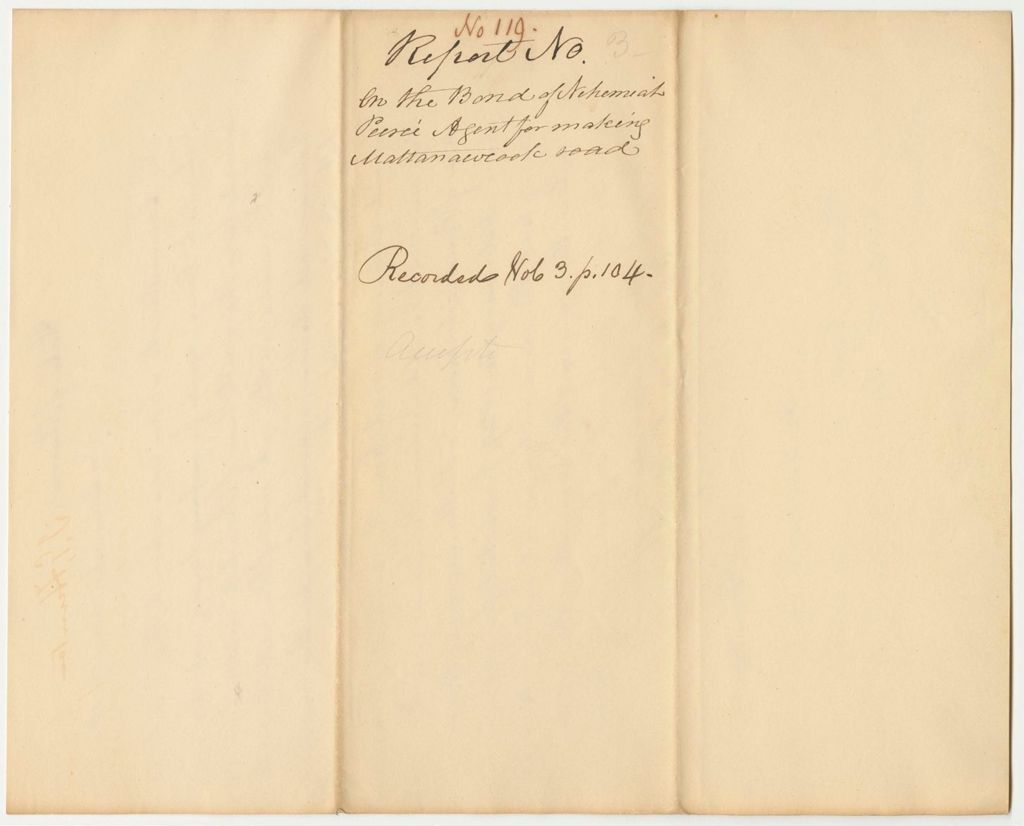 No 119.
Report No. 3-
On the Bond of Nehemiah
Peirce Agent for making
Mattanawcook road
Recorded Vol 3. p. 104-